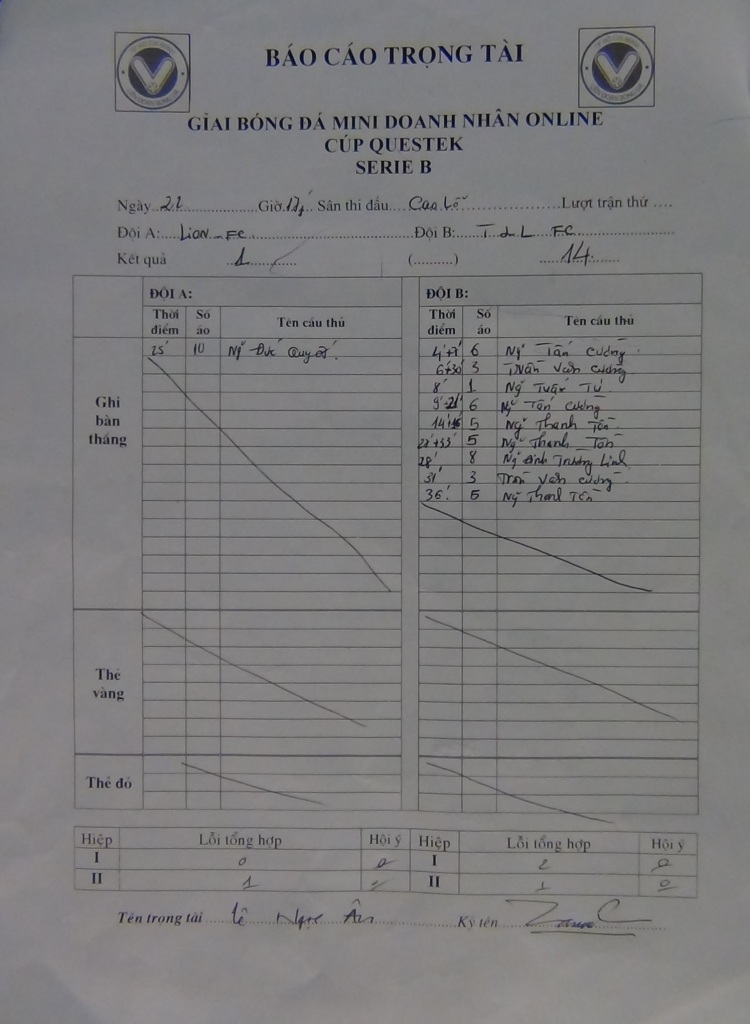 BÁO CÁO TRỌNG TÀI
GIẢI BÓNG ĐÁ MINI DOANH NHÂN ONLINE
CÚP QUESTEK
SERIE B
Ngày 22 Giờ Sân thi đấu Cao Lỗ Lượt trận thứ ....
Đội A: Lion - FC Đội B: T & L FC
Kết quả 1 (..........) 14
ĐỘI A: ĐỘI B:
Thời điểm Số áo Tên cầu thủ Thời điểm Số áo Tên cầu thủ
Ghi bàn thắng
25' 10 Ng Đức Quyết 4'+7' 6 Ng Tấn Cường
6'+30' 3 Trần Văn Cường
8' 1 Ng Tuấn Tú
9'+21' 6 Ng Tấn Cường
5 Ng Thanh Tấn
5 Ng Thanh Tấn
28' 8 Ng Đình Trường Linh
31' 3 Trần Văn Cường
36' 5 Ng Thanh Tấn
Thẻ vàng
Thẻ đỏ
Hiệp Lỗi tổng hợp Hội ý Hiệp Lỗi tổng hợp Hội ý
I 0 0 I 2 0
II 1 0 II 1 0
Tên trọng tài Lê Ngọc Ân Ký tên